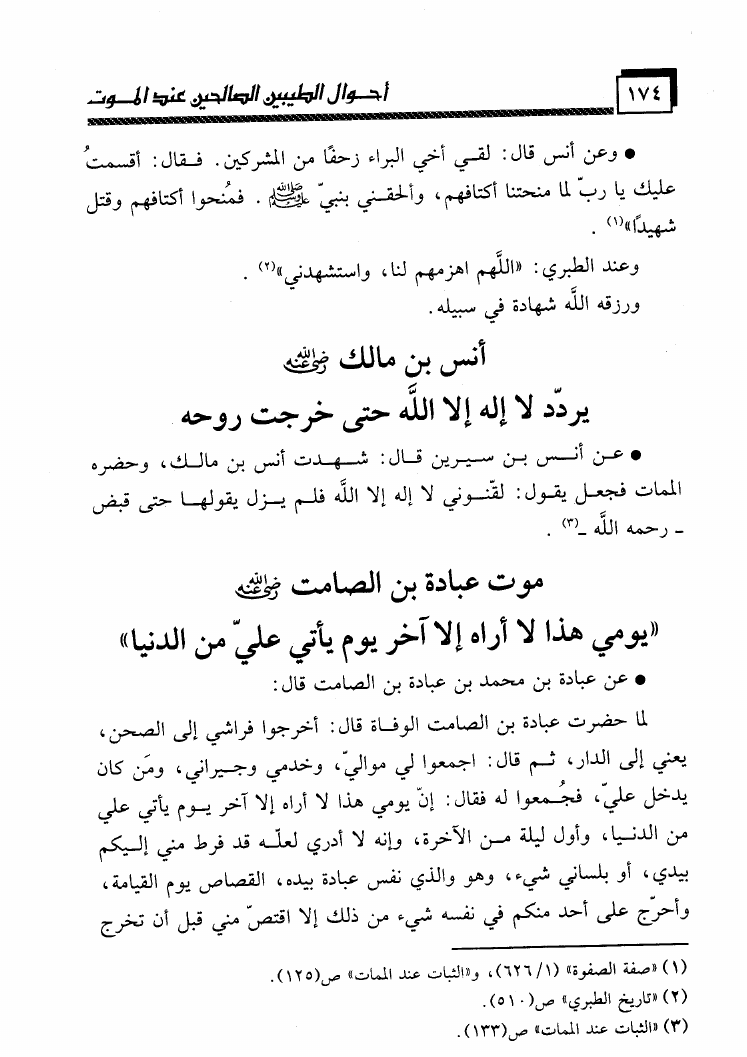 ١٧٤
أحـوال الطيبين الصالحين عند المـوت
● وعن أنس قال: لقـي أخي البراء زحفًا من المشركين. فـقال: أقسمتُ
عليك يا ربّ لما منحتنا أكتافهم، وألحقـني بنبيّ ﷺ. فمُنحوا أكتافهم وقتل
شهيدًا»(١).
وعند الطبري: «اللَّهم اهزمهم لنا، واستشهدني»(٢).
ورزقه اللَّه شهادة في سبيله.
أنس بن مالك رضي الله عنه
يردّد لا إله إلا اللَّه حتى خرجت روحه
● عـن أنـس بـن سـيرين قـال: شـهـدت أنس بن مالـك، وحضره
الممات فجعـل يقـول: لقّنـوني لا إله إلا اللَّه فلـم يـزل يقولهـا حتى قبض
ـ رحمه اللَّه ـ(٣).
موت عبادة بن الصامت رضي الله عنه
«يومي هذا لا أراه إلا آخر يوم يأتي عليّ من الدنيا»
● عن عبادة بن محمد بن عبادة بن الصامت قال:
لما حضرت عبادة بن الصامت الوفـاة قال: أخرجوا فراشي إلى الصحن،
يعني إلى الدار، ثـم قال: اجمعوا لي مواليّ، وخدمي وجـيراني، ومَن كان
يدخل عليّ، فجُـمعوا له فقال: إنّ يومي هذا لا أراه إلا آخر يـوم يأتي علي
من الدنـيا، وأول ليلة مـن الآخرة، وإنه لا أدري لعلّـه قد فرط مني إلـيكم
بيدي، أو بلساني شيء، وهو والذي نفس عبادة بيده، القصاص يوم القيامة،
وأحرّج على أحد منكم في نفسه شيء من ذلك إلا اقتصّ مني قبل أن تخرج
(١) «صفة الصفوة» (١/ ٦٢٦)، و«الثبات عند الممات» ص(١٢٥).
(٢) «تاريخ الطبري» ص(٥١٠).
(٣) «الثبات عند الممات» ص(١٣٣).